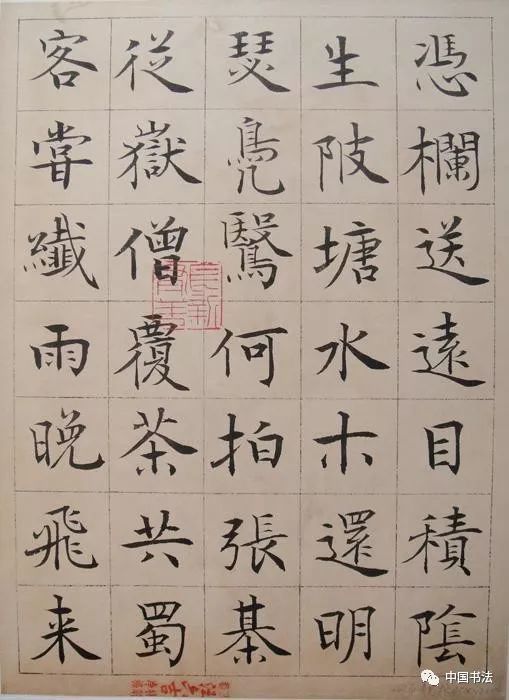 憑欄送遠目積陰
生陂塘水木還明
瑟鳧鷖何拍張棊
從嶽僧覆茶共蜀
客嘗纖雨晚飛来
中国书法